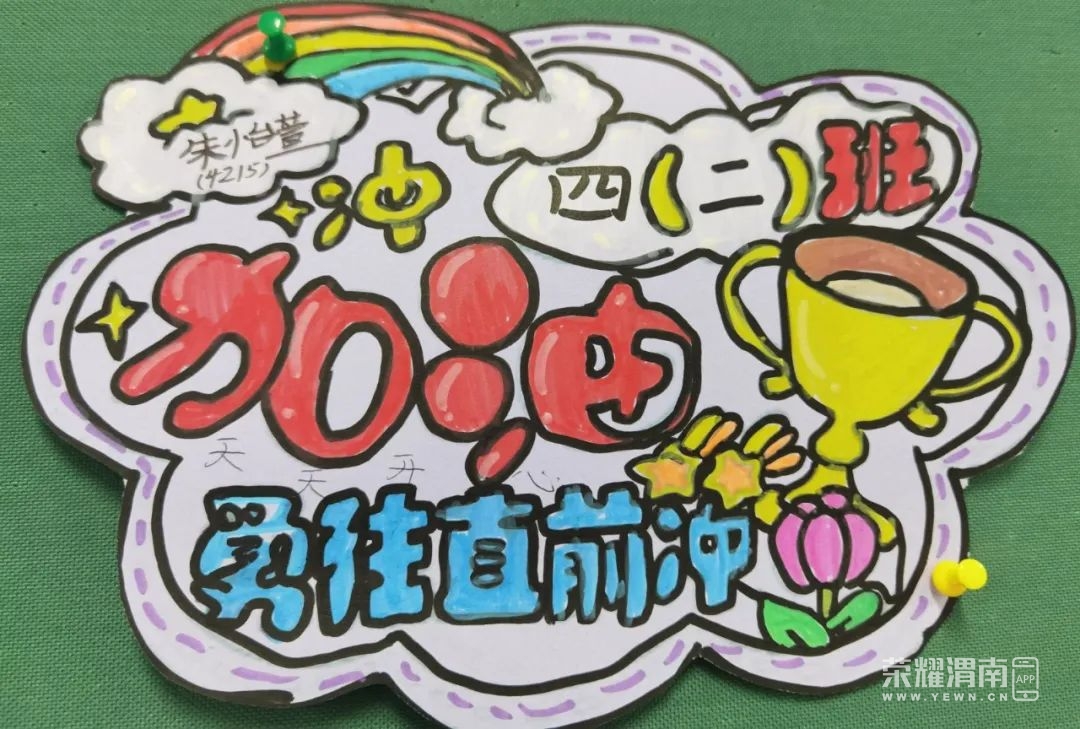 朱怡萱
(4215)
冲
四(二)班
加油
天天开心
勇往直前冲
荣耀渭南
APP
WWW.YEWN.CN